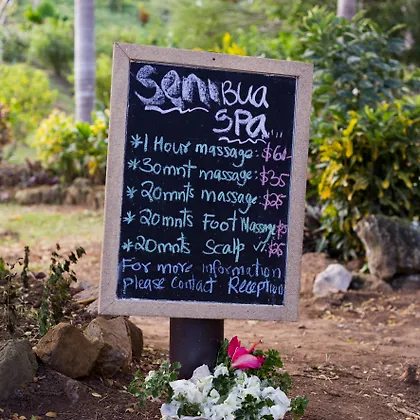 Senibua
Spa
* 1 Hour massage: $60
* 30mnt massage: $35
* 20mnts massage: $25
* 20mnts Foot Massage $25
* 20mnts Scalp $25
For more information
please contact Reception